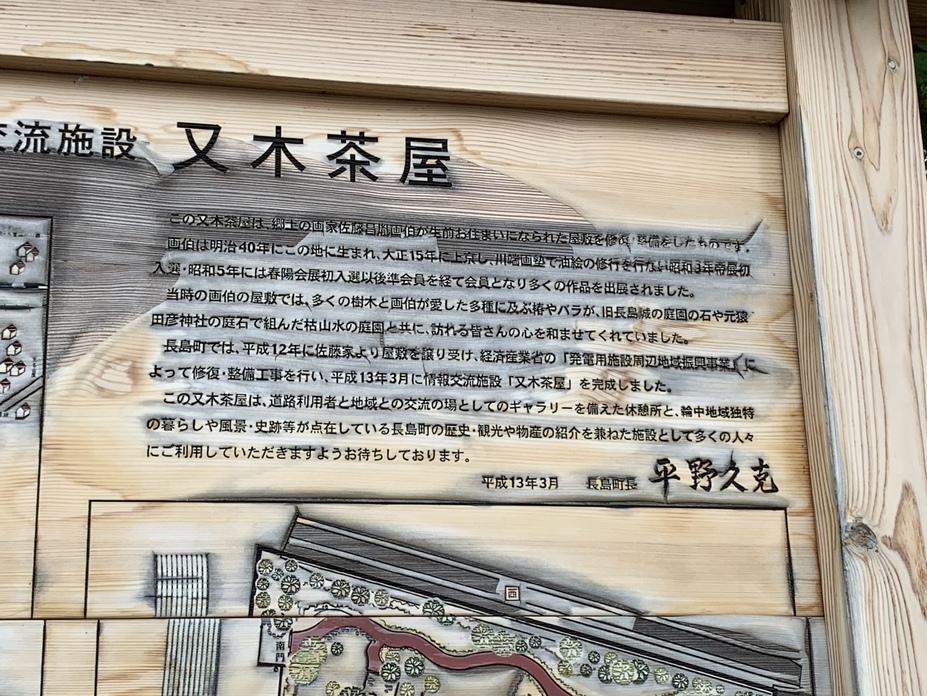 交流施設 又木茶屋
この又木茶屋は、郷土の画家佐藤昌胤画伯が生前お住まいになられた屋敷を修復・整備をしたものです。
画伯は明治40年にこの地に生まれ、大正15年に上京し、川端画塾で油絵の修行を行ない昭和3年帝展初
入選・昭和5年には春陽会展初入選以後準会員を経て会員となり多くの作品を出展されました。
当時の画伯の屋敷では、多くの樹木と画伯が愛した多種に及ぶ椿やバラが、旧長島城の庭園の石や元猿
田彦神社の庭石で組んだ枯山水の庭園と共に、訪れる皆さんの心を和ませてくれていました。
長島町では、平成12年に佐藤家より屋敷を譲り受け、経済産業省の「発電用施設周辺地域振興事業」に
よって修復・整備工事を行い、平成13年3月に情報交流施設「又木茶屋」を完成しました。
この又木茶屋は、道路利用者と地域との交流の場としてのギャラリーを備えた休憩所と、輪中地域独特
の暮らしや風景・史跡等が点在している長島町の歴史・観光や物産の紹介を兼ねた施設として多くの人々
にご利用していただきますようお待ちしております。
平成13年3月 長島町長 平野久克
西
南門